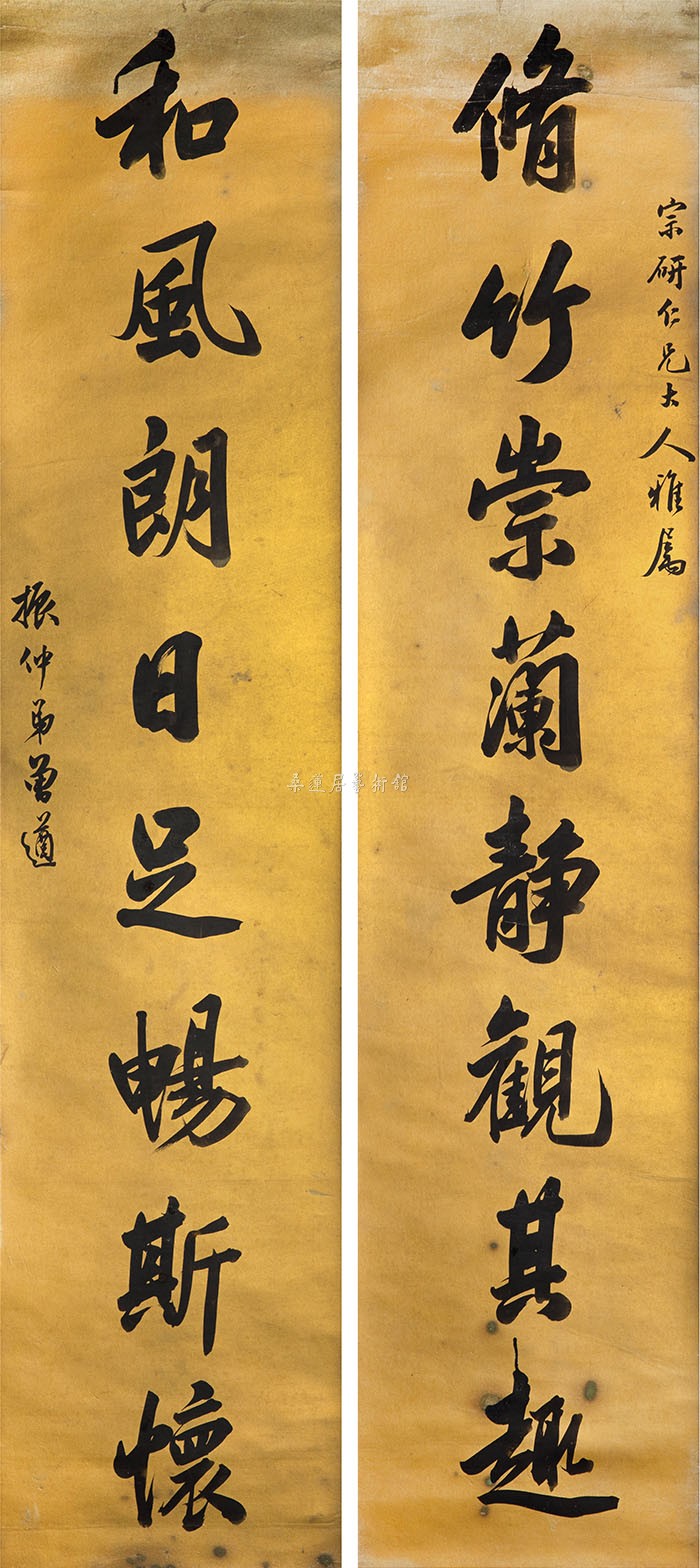 宗研仁兄大人雅屬
脩竹崇蘭静觀其趣
和風朗日足暢斯懷
振仲弟曾遒
桑蓮居藝術館